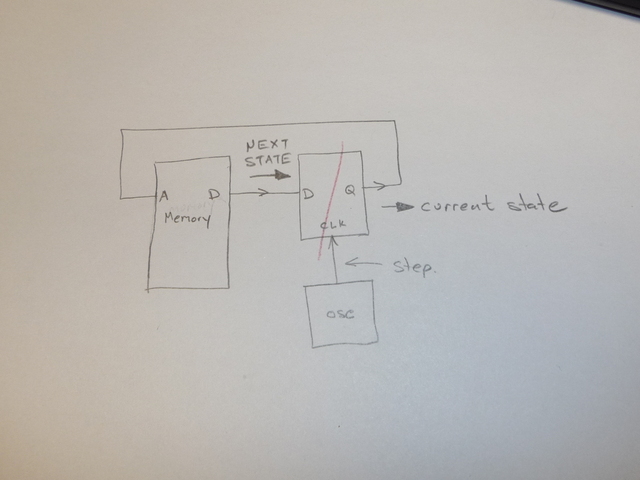 NEXT
STATE
A D
Memory
D Q
CLK
current state
step.
OSC